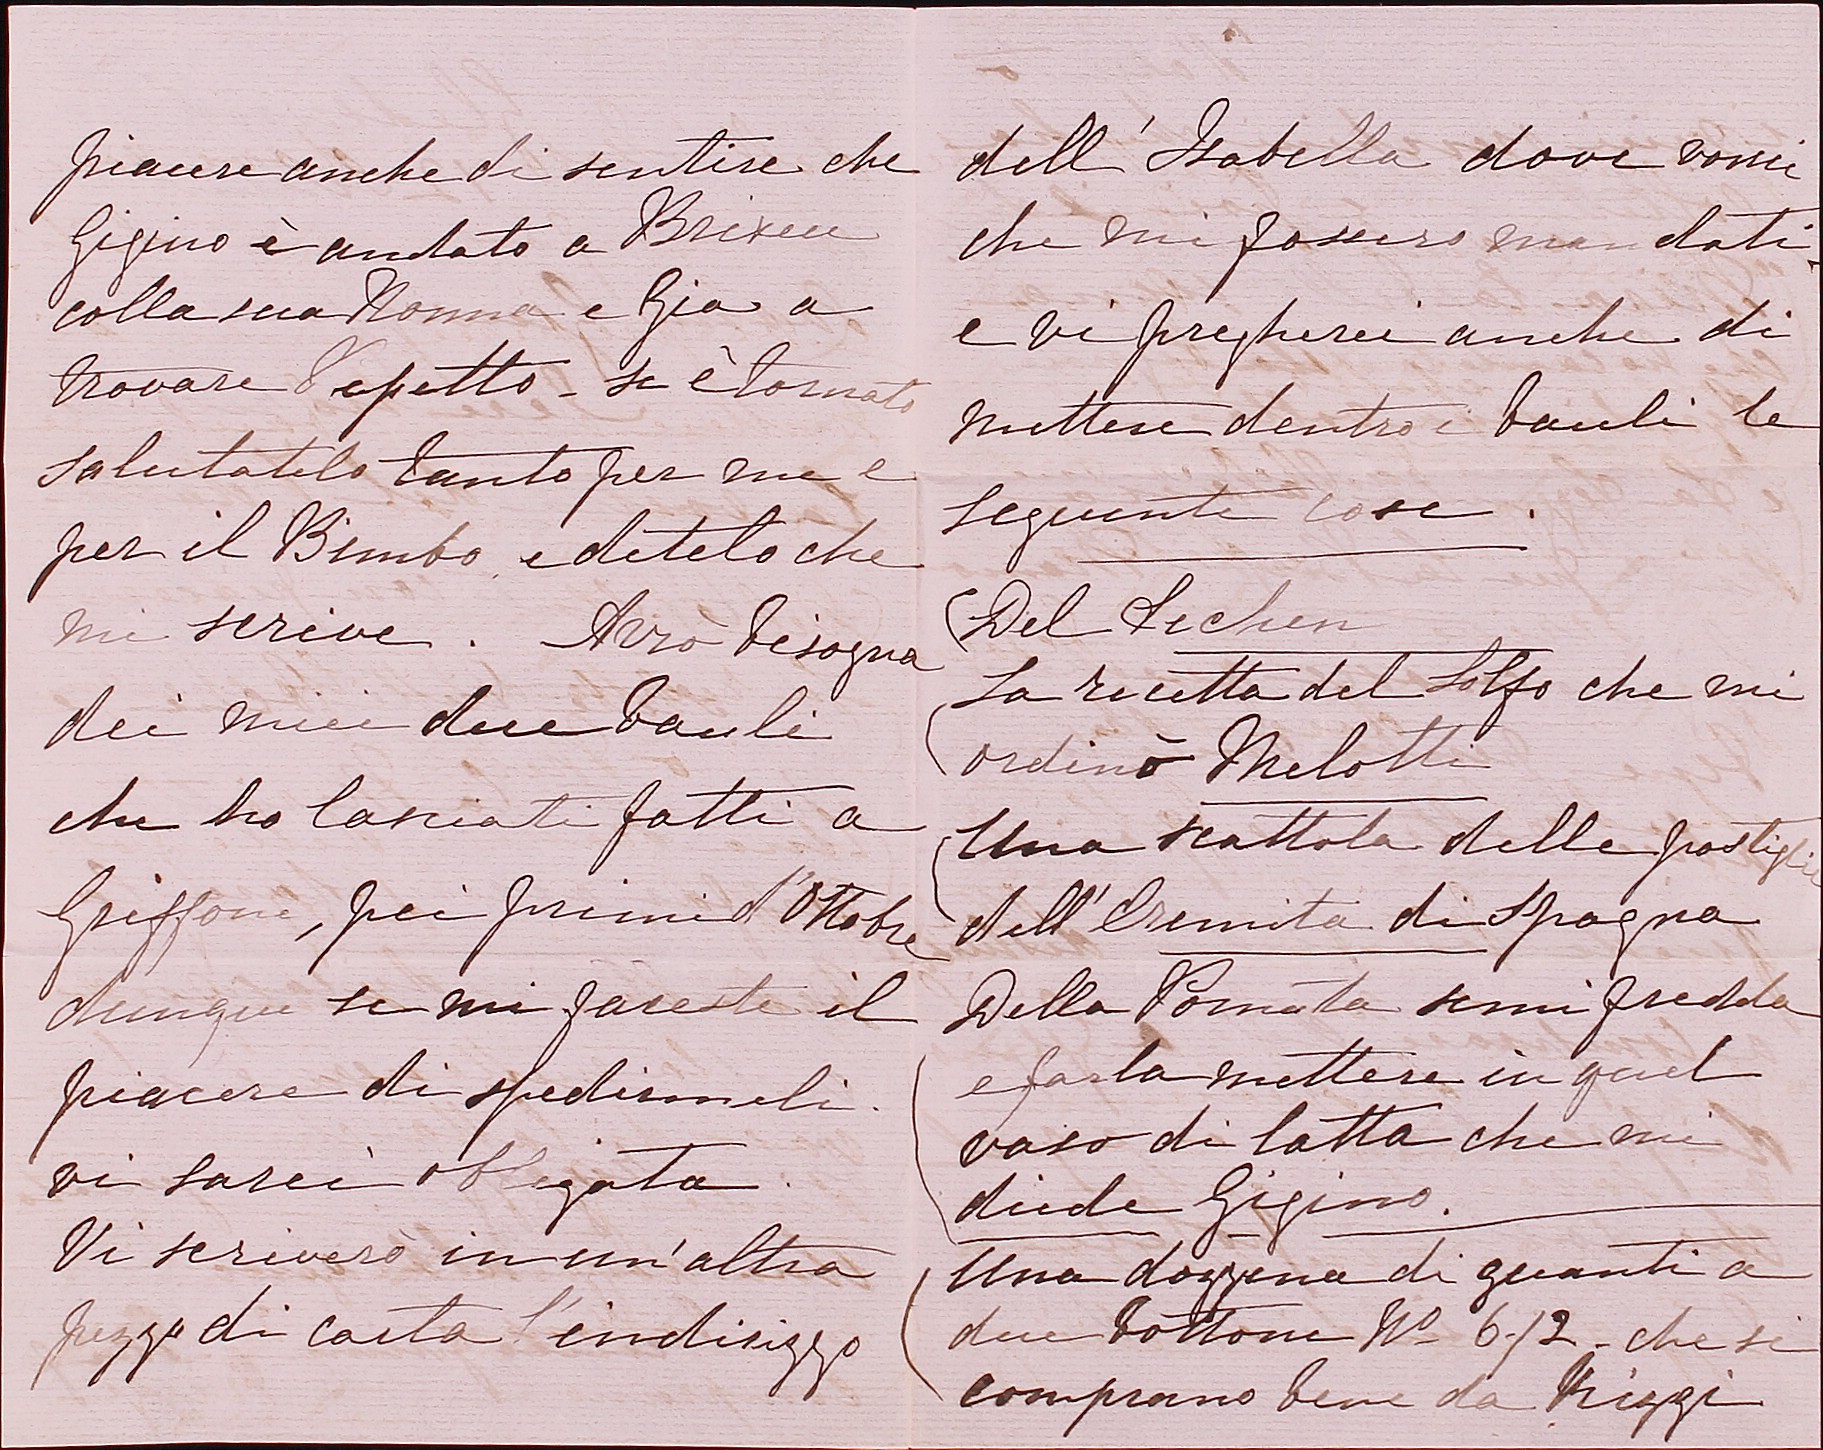 piacere anche di sentire che
Gigino è andato a Brixen
colla sua Nonna e Gia a
trovare Pepetto - se è tornato
salutatelo tanto per me e
per il Bimbo e ditelo che
mi scrive. Avrò bisogna
dei miei due bauli
che ho lasciati fatti a
Griffone, pei primi d'Ottobre
dunque se mi fareste il
piacere di spedirmeli.
vi sarei obbligata.
Vi scriverò in un'altra
pezzo di carta l'indirizzo
dell'Isabella dove vorrei
che mi fossero mandati,
e vi pregherei anche di
mettere dentro i bauli le
seguenti cose.
Del Lichen
La ricetta del Solfo che mi
ordinò Melotti
Una scattola delle pastiglie
dell'Eremita di Spagna
Della Pomata semifredda
e farla mettere in quel
vaso di latta che mi
diede Gigino.
Una dozzena di guanti a
due bottone No 6-/2 - che si
comprano bene da